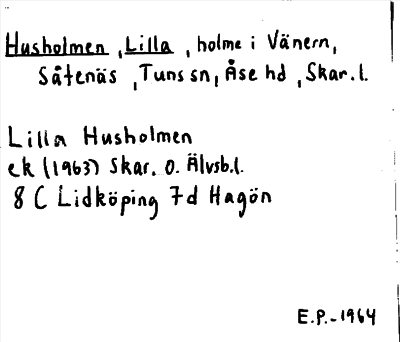 Husholmen, Lilla, holme i Vänern,
Såtenäs, Tuns sn, Åse hd, Skar.l.
Lilla Husholmen
ek (1963) Skar. o. Älvsb.l.
8 C Lidköping 7d Hagön
E.P.-1964